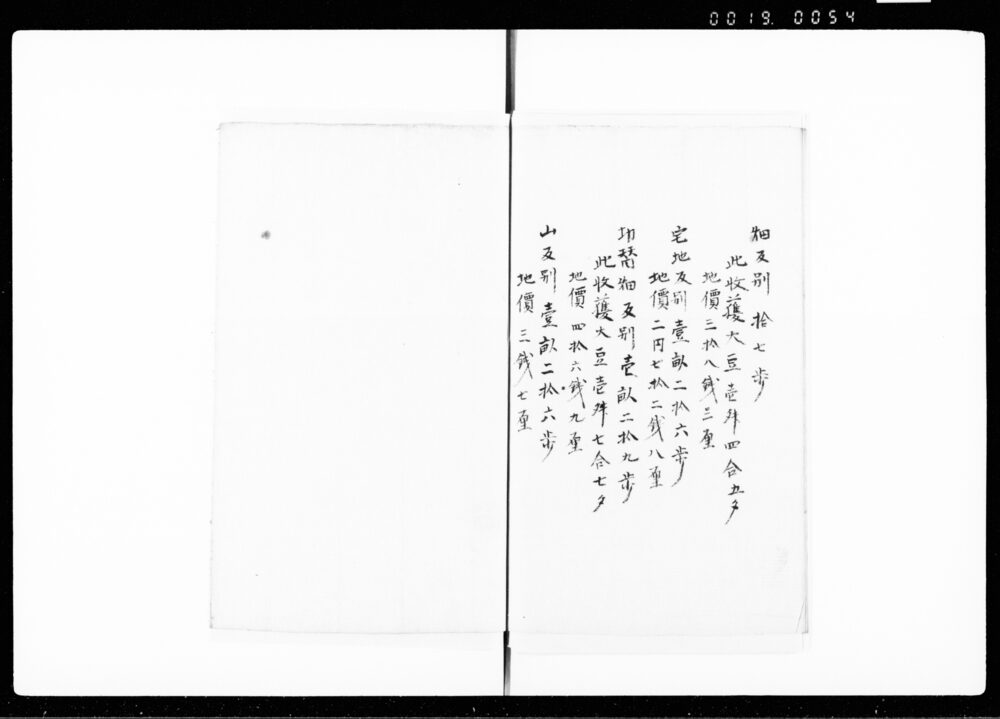 0019. 0054
畑反别 拾七歩
此收獲大豆壱舛四合五夕
地價三拾八銭三厘
宅地反别壹畝二拾六歩
地價二円七拾二銭八厘
切替畑反别壱畝二拾九歩
此收獲大豆壱舛七合七夕
地價四拾六銭九厘
山反别壹畝二拾六歩
地價三銭七厘